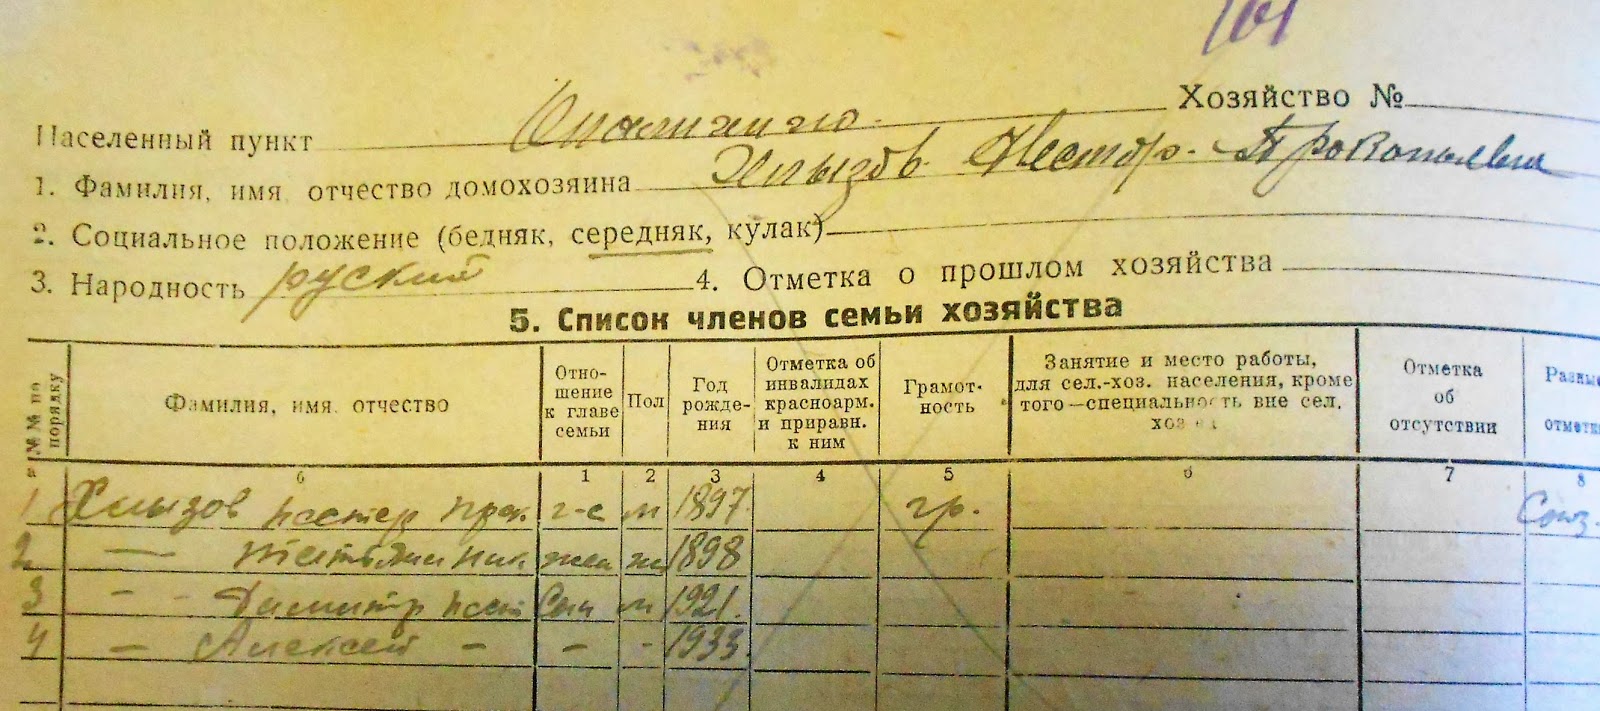 101
Хозяйство №
Населенный пункт
1. Фамилия, имя отчество домохозяина Хлызов Нестор Прокопьевич
2. Социальное положение (бедняк, середняк, кулак)
3. Народность руский 4. Отметка о прошлом хозяйства
5. Список членов семьи хозяйства
№№ по порядку
Фамилия, имя отчество
Отно-
шение
к главе
семьи
Пол
Год
рожде-
ния
Отметка об
инвалидах
красноарм.
и приравн.
к ним
Грамот-
ность
Занятие и место работы,
для сел.-хоз. населения, кроме
того—специальность вне сел.
Отметка
об
отсутствии
Разные
отметки
1 2 3 4 5 6 7 8
1 Хлызов Нестер Прок. г-с м 1897 гр.
2 — Татьяна Ник. жен ж 1898
3 - - Димитр Нест Сын м 1921.
4 — Алексей — — - 1933.